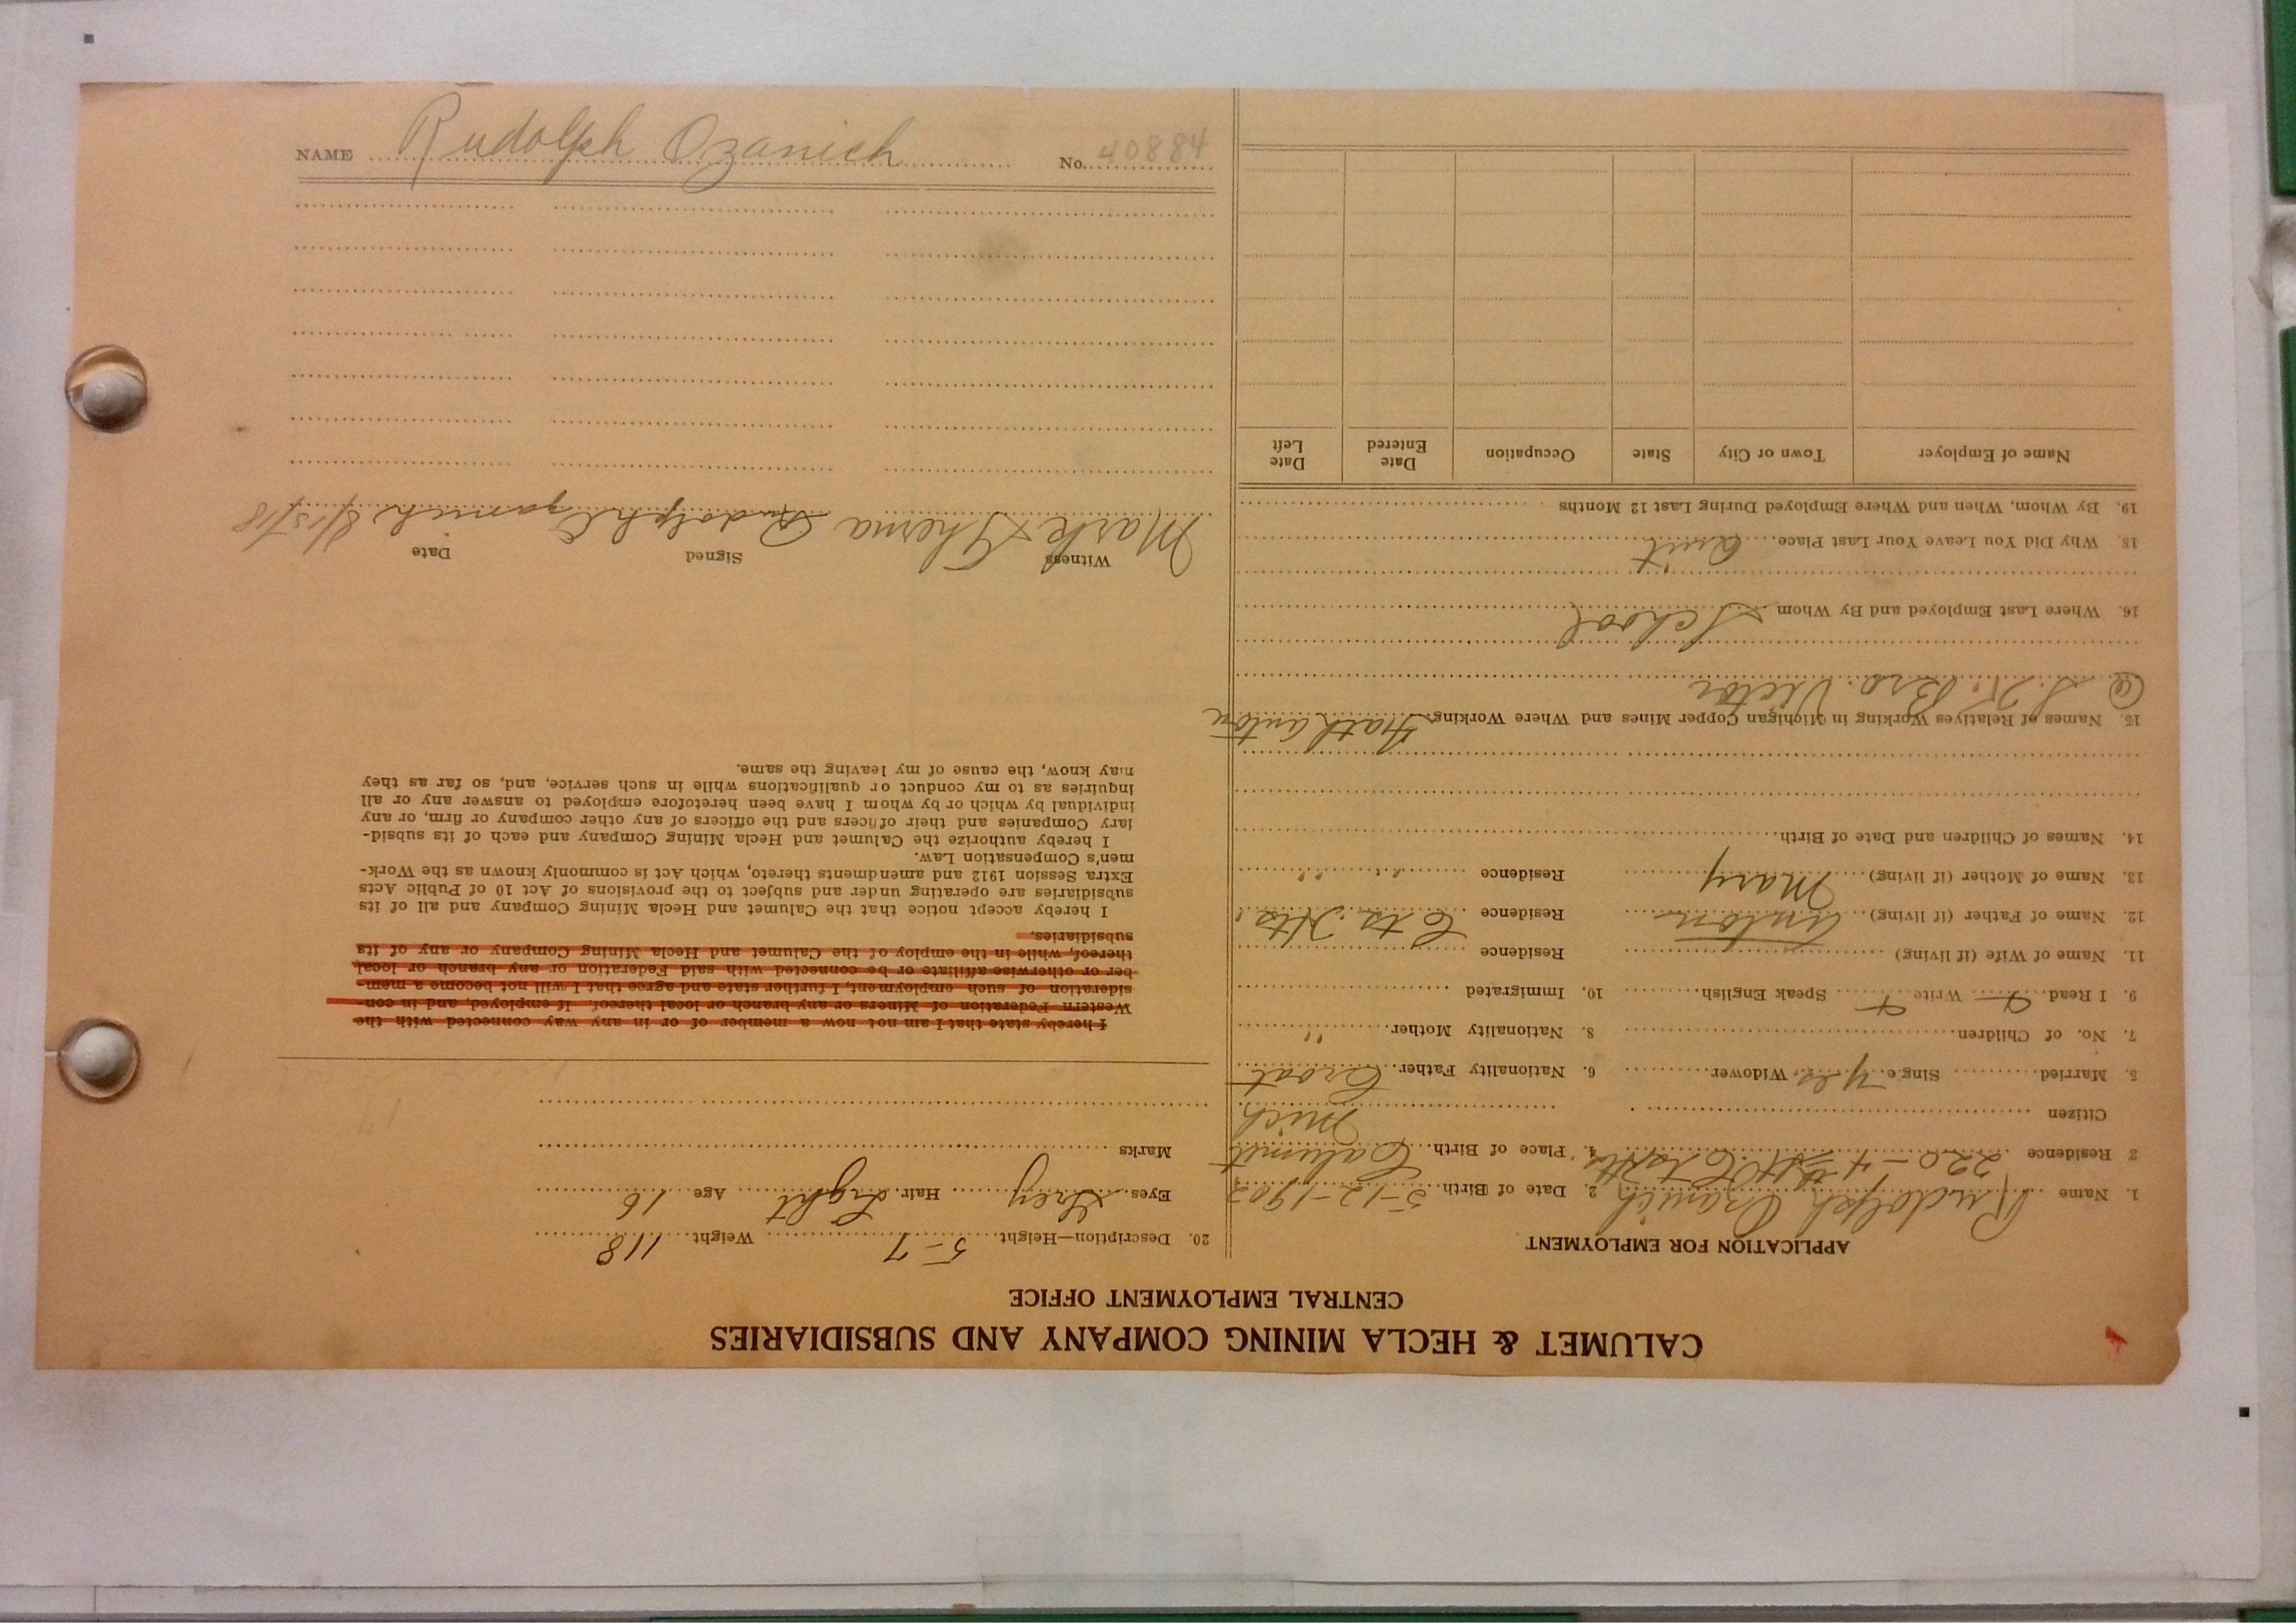 CALUMET & HECLA MINING COMPANY AND SUBSIDIARIES
CENTRAL EMPLOYMENT OFFICE
APPLICATION FOR EMPLOYMENT
1. Name Rudolph Ozanich 2. Date of Birth 5-12-1902
3 Residence 220-4 4. Place of Birth Calumet
Mich
Citizen
5. Married Single yes, Widower 6. Nationality Father Croat
7. No. of Children 8. Nationality Mother "
9. I Read Write Speak English 10. Immigrated
11. Name of Wife (if living) Residence
12. Name of Father (if living) Anton Residence C ts. Hts.
13. Name of Mother (if living) Mary Residence " "
14. Names of Children and Date of Birth
15. Names of Relatives Working in Michigan Copper Mines and Where Working Fath Anton
Bro. Victor
16. Where Last Employed and By Whom School
18. Why Did You Leave Your Last Place Quit
19. By Whom, When and Where Employed During Last 12 Months
Name of Employer Town or City State Occupation Date Entered Date Left
20. Description—Height 5-7 Weight 118
Eyes Grey Hair Light Age 16
Marks
I hereby state that I am not now a member of or in any way connected with the
Western Federation of Miners or any branch or local thereof. If employed, and in con-
sideration of such employment, I further state and agree that I will not become a mem-
ber or otherwise affiliate or be connected with said Federation or any branch or local
thereof, while in the employ of the Calumet and Hecla Mining Company or any of its
subsidiaries.
I hereby accept notice that the Calumet and Hecla Mining Company and all of its
subsidiaries are operating under and subject to the provisions of Act 10 of Public Acts
Extra Session 1912 and amendments thereto, which Act is commonly known as the Work-
men's Compensation Law.
I hereby authorize the Calumet and Hecla Mining Company and each of its subsid-
iary Companies and their officers and the officers of any other company or firm, or any
individual by which or by whom I have been heretofore employed to answer any or all
inquiries as to my conduct or qualifications while in such service, and, so far as they
may know, the cause of my leaving the same.
Witness Signed Date
Mark Rudolph Ozanich 8/15/18
NAME Rudolph Ozanich No. 40884